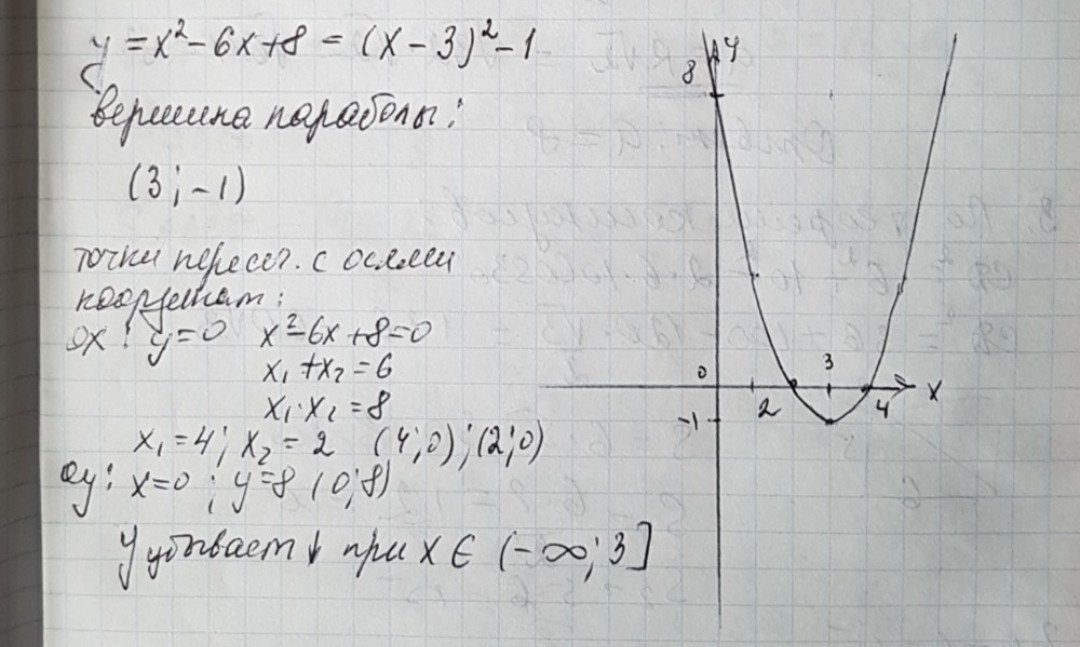 y = x² - 6x + 8 = (x - 3)² - 1
вершина параболы:
(3; -1)
точки пересеч. с осями
координат:
ox: y = 0 x² - 6x + 8 = 0
x₁ + x₂ = 6
x₁ · x₂ = 8
x₁ = 4; x₂ = 2 (4; 0); (2; 0)
oy: x = 0; y = 8 (0; 8)
y убывает ↓ при x ∈ (-∞; 3]
y
8
0
3
2
4
x
-1